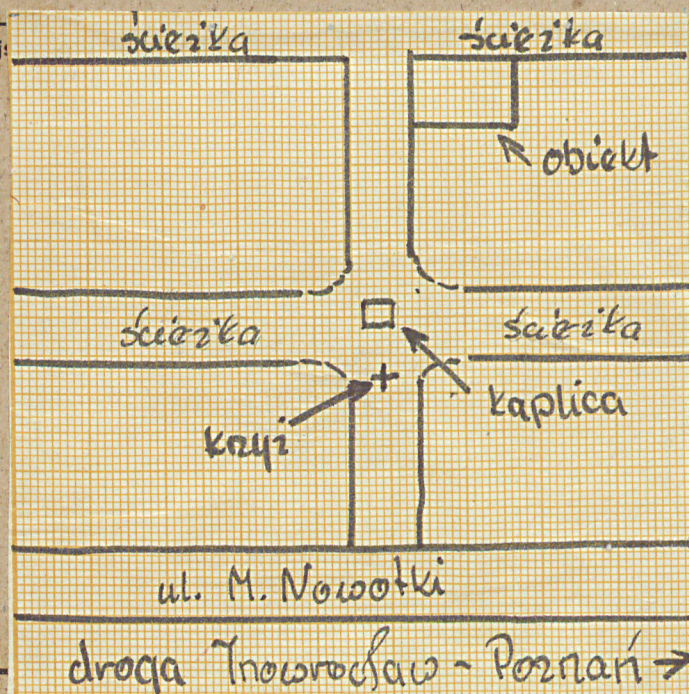 ścieżka ścieżka
obiekt
ścieżka ścieżka
kaplica
krzyż
ul. M. Nowotki
droga Inowrocław - Poznań →